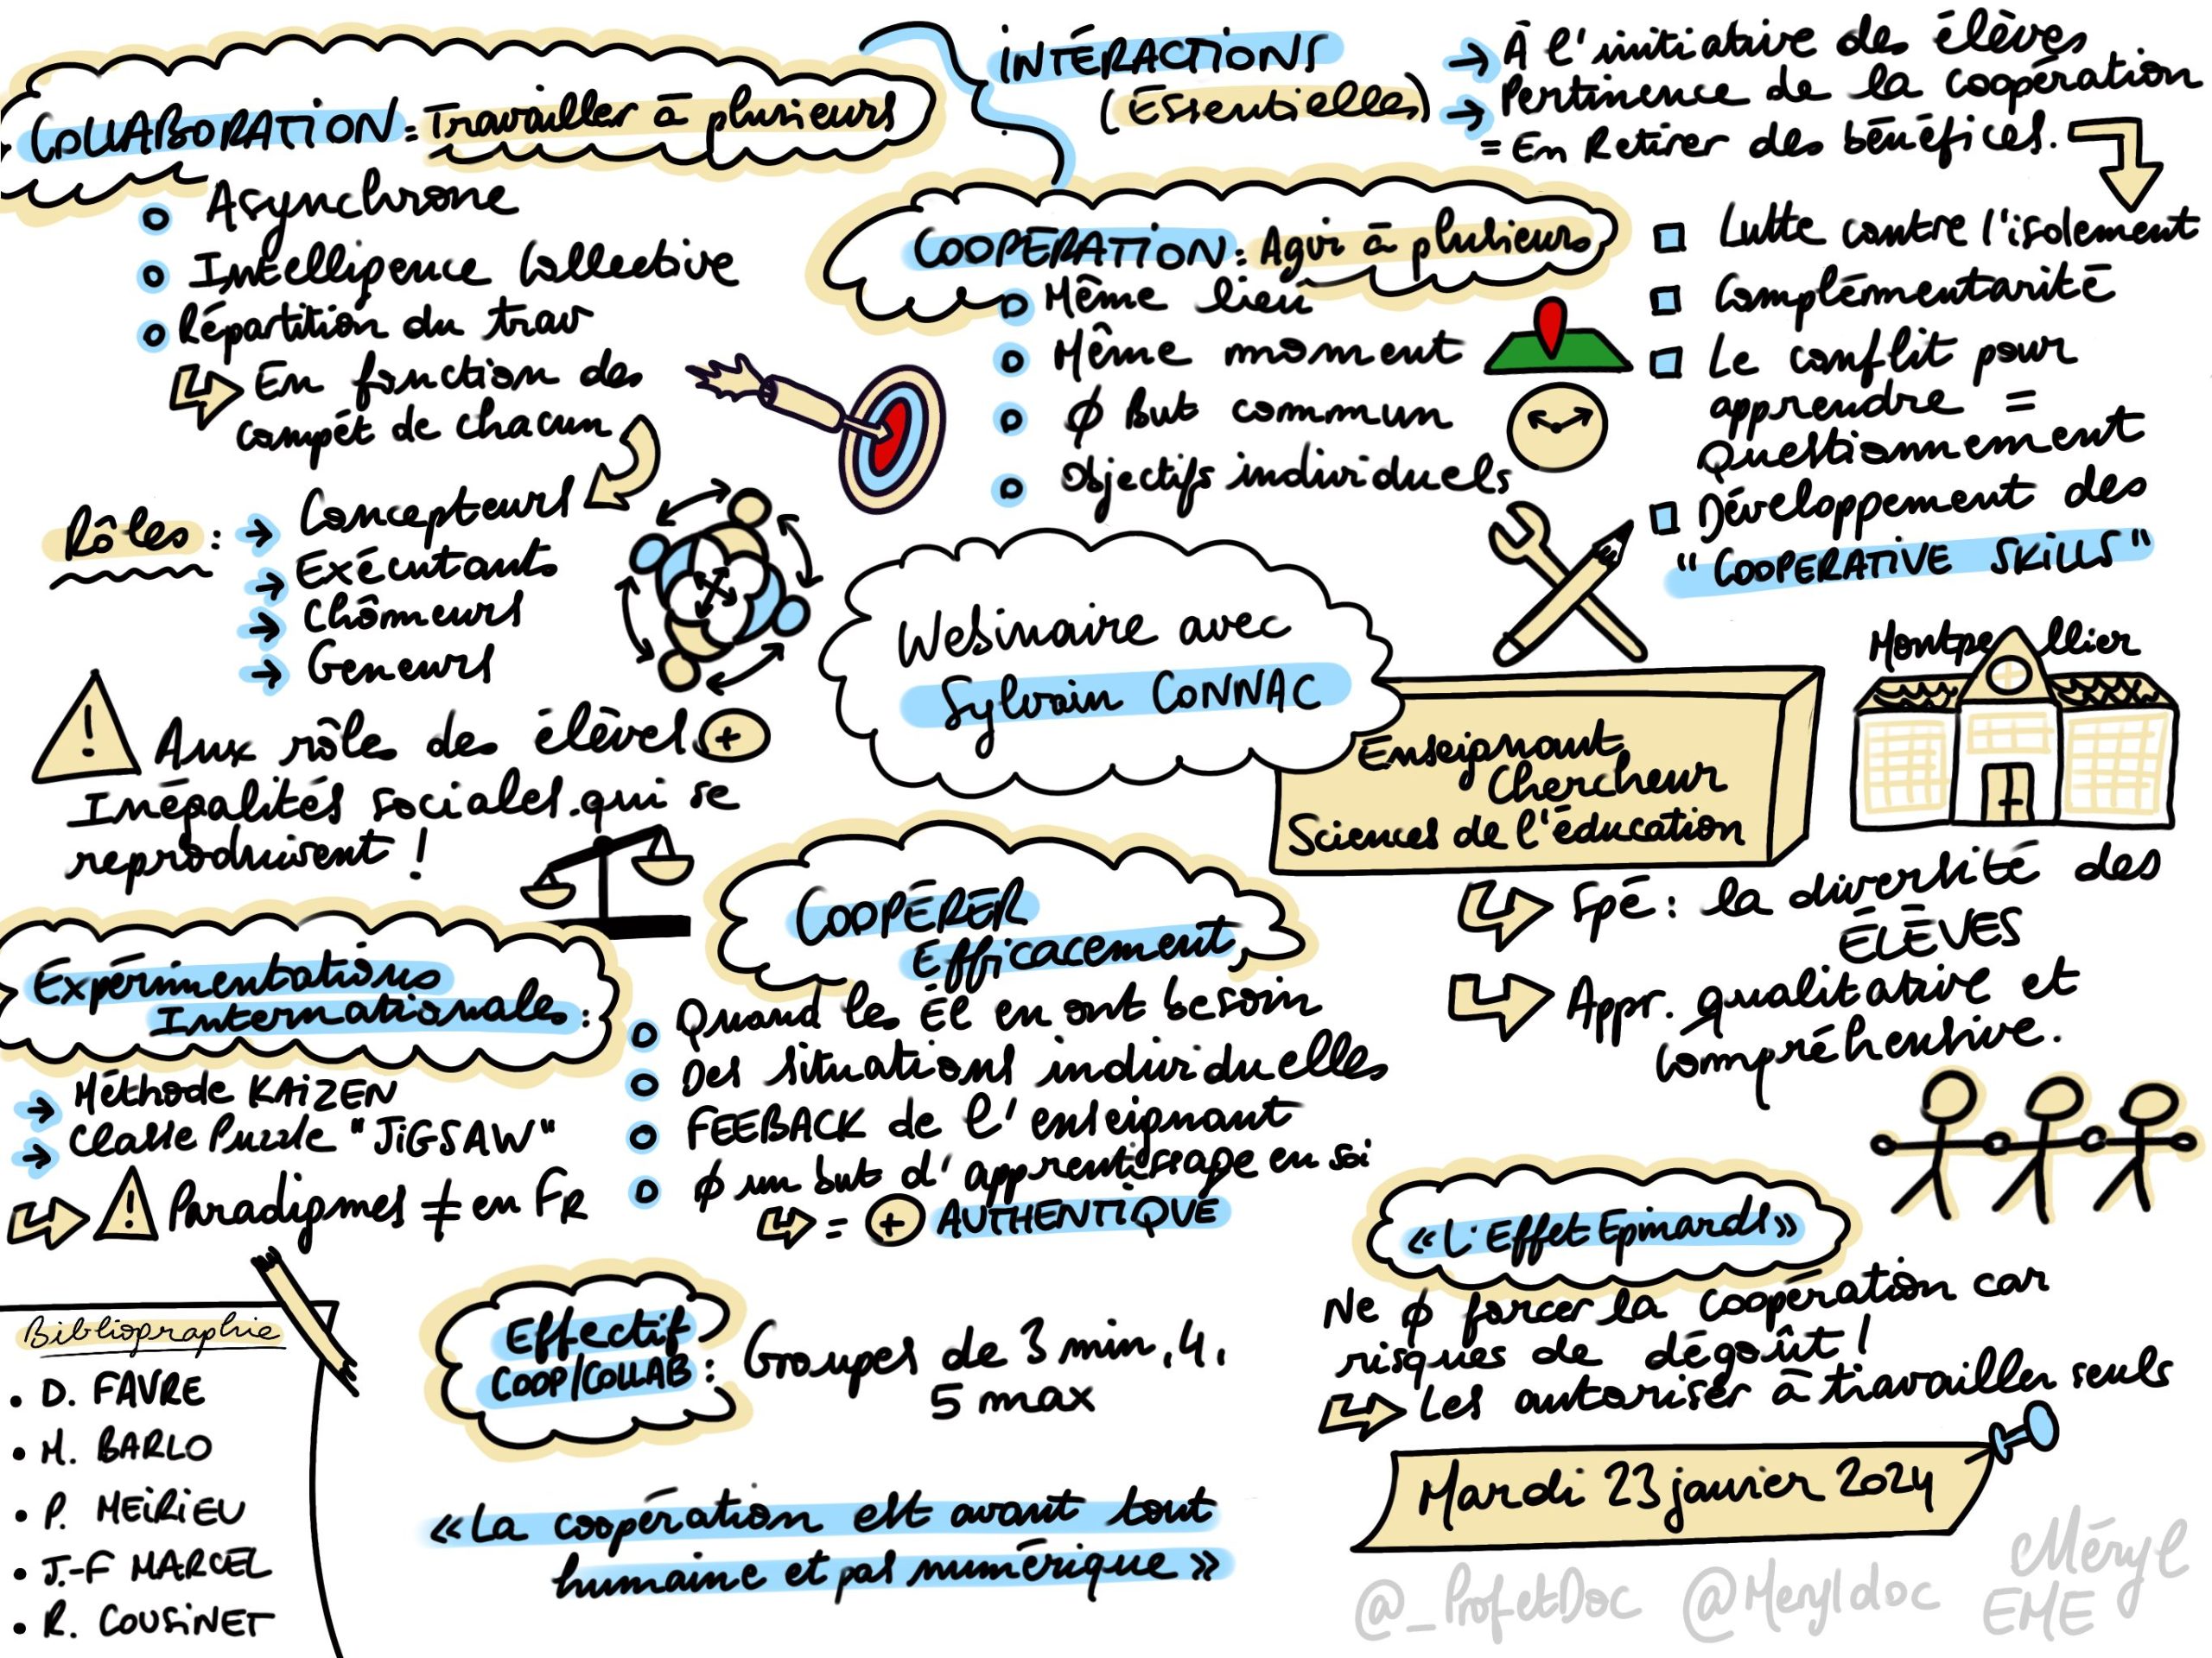 COLLABORATION = Travailler à plusieurs
o Asynchrone
o Intelligence Collective
o Répartition du trav
En fonction des
compét de chacun
Rôles :
→ Concepteurs
→ Exécutants
→ Chômeurs
→ Geneurs
! Aux rôles des élèves +
Inégalités sociales qui se
reproduisent !
INTÉRACTIONS
(Essentielles)
→ À l'initiative des élèves
→ Pertinence de la coopération
= En Retirer des bénéfices.
COOPÉRATION : Agir à plusieurs
o Même lieu
o Même moment
o Ø But commun
o Objectifs individuels
Lutte contre l'isolement
Complémentarité
Le conflit pour
apprendre =
Questionnement
Développement des
"COOPERATIVE SKILLS"
Webinaire avec
Sylvain CONNAC
Enseignant
Chercheur
Sciences de l'éducation
Montpellier
Spé : la diversité des
ÉLÈVES
Appr. qualitative et
compréhensive.
Expérimentations
Internationales :
→ Méthode KAIZEN
→ Classe Puzzle "JIGSAW"
! Paradigmes ≠ en FR
COOPÉRER
Efficacement,
o Quand les Él en ont besoin
o Des situations individuelles
o FEEBACK de l'enseignant
o Ø un but d'apprentissage en soi
= + AUTHENTIQUE
« L'Effet Epinards »
Ne Ø forcer la coopération car
risques de dégoût !
Les autoriser à travailler seuls
Effectif
COOP/COLLAB :
Groupes de 3 min, 4,
5 max
Bibliographie
• D. FAVRE
• M. BARLO
• P. MEIRIEU
• J.-F MARCEL
• R. COUSINET
« La coopération est avant tout
humaine et pas numérique »
Mardi 23 janvier 2024
@_ProfetDoc @Meryldoc Méryl
EME